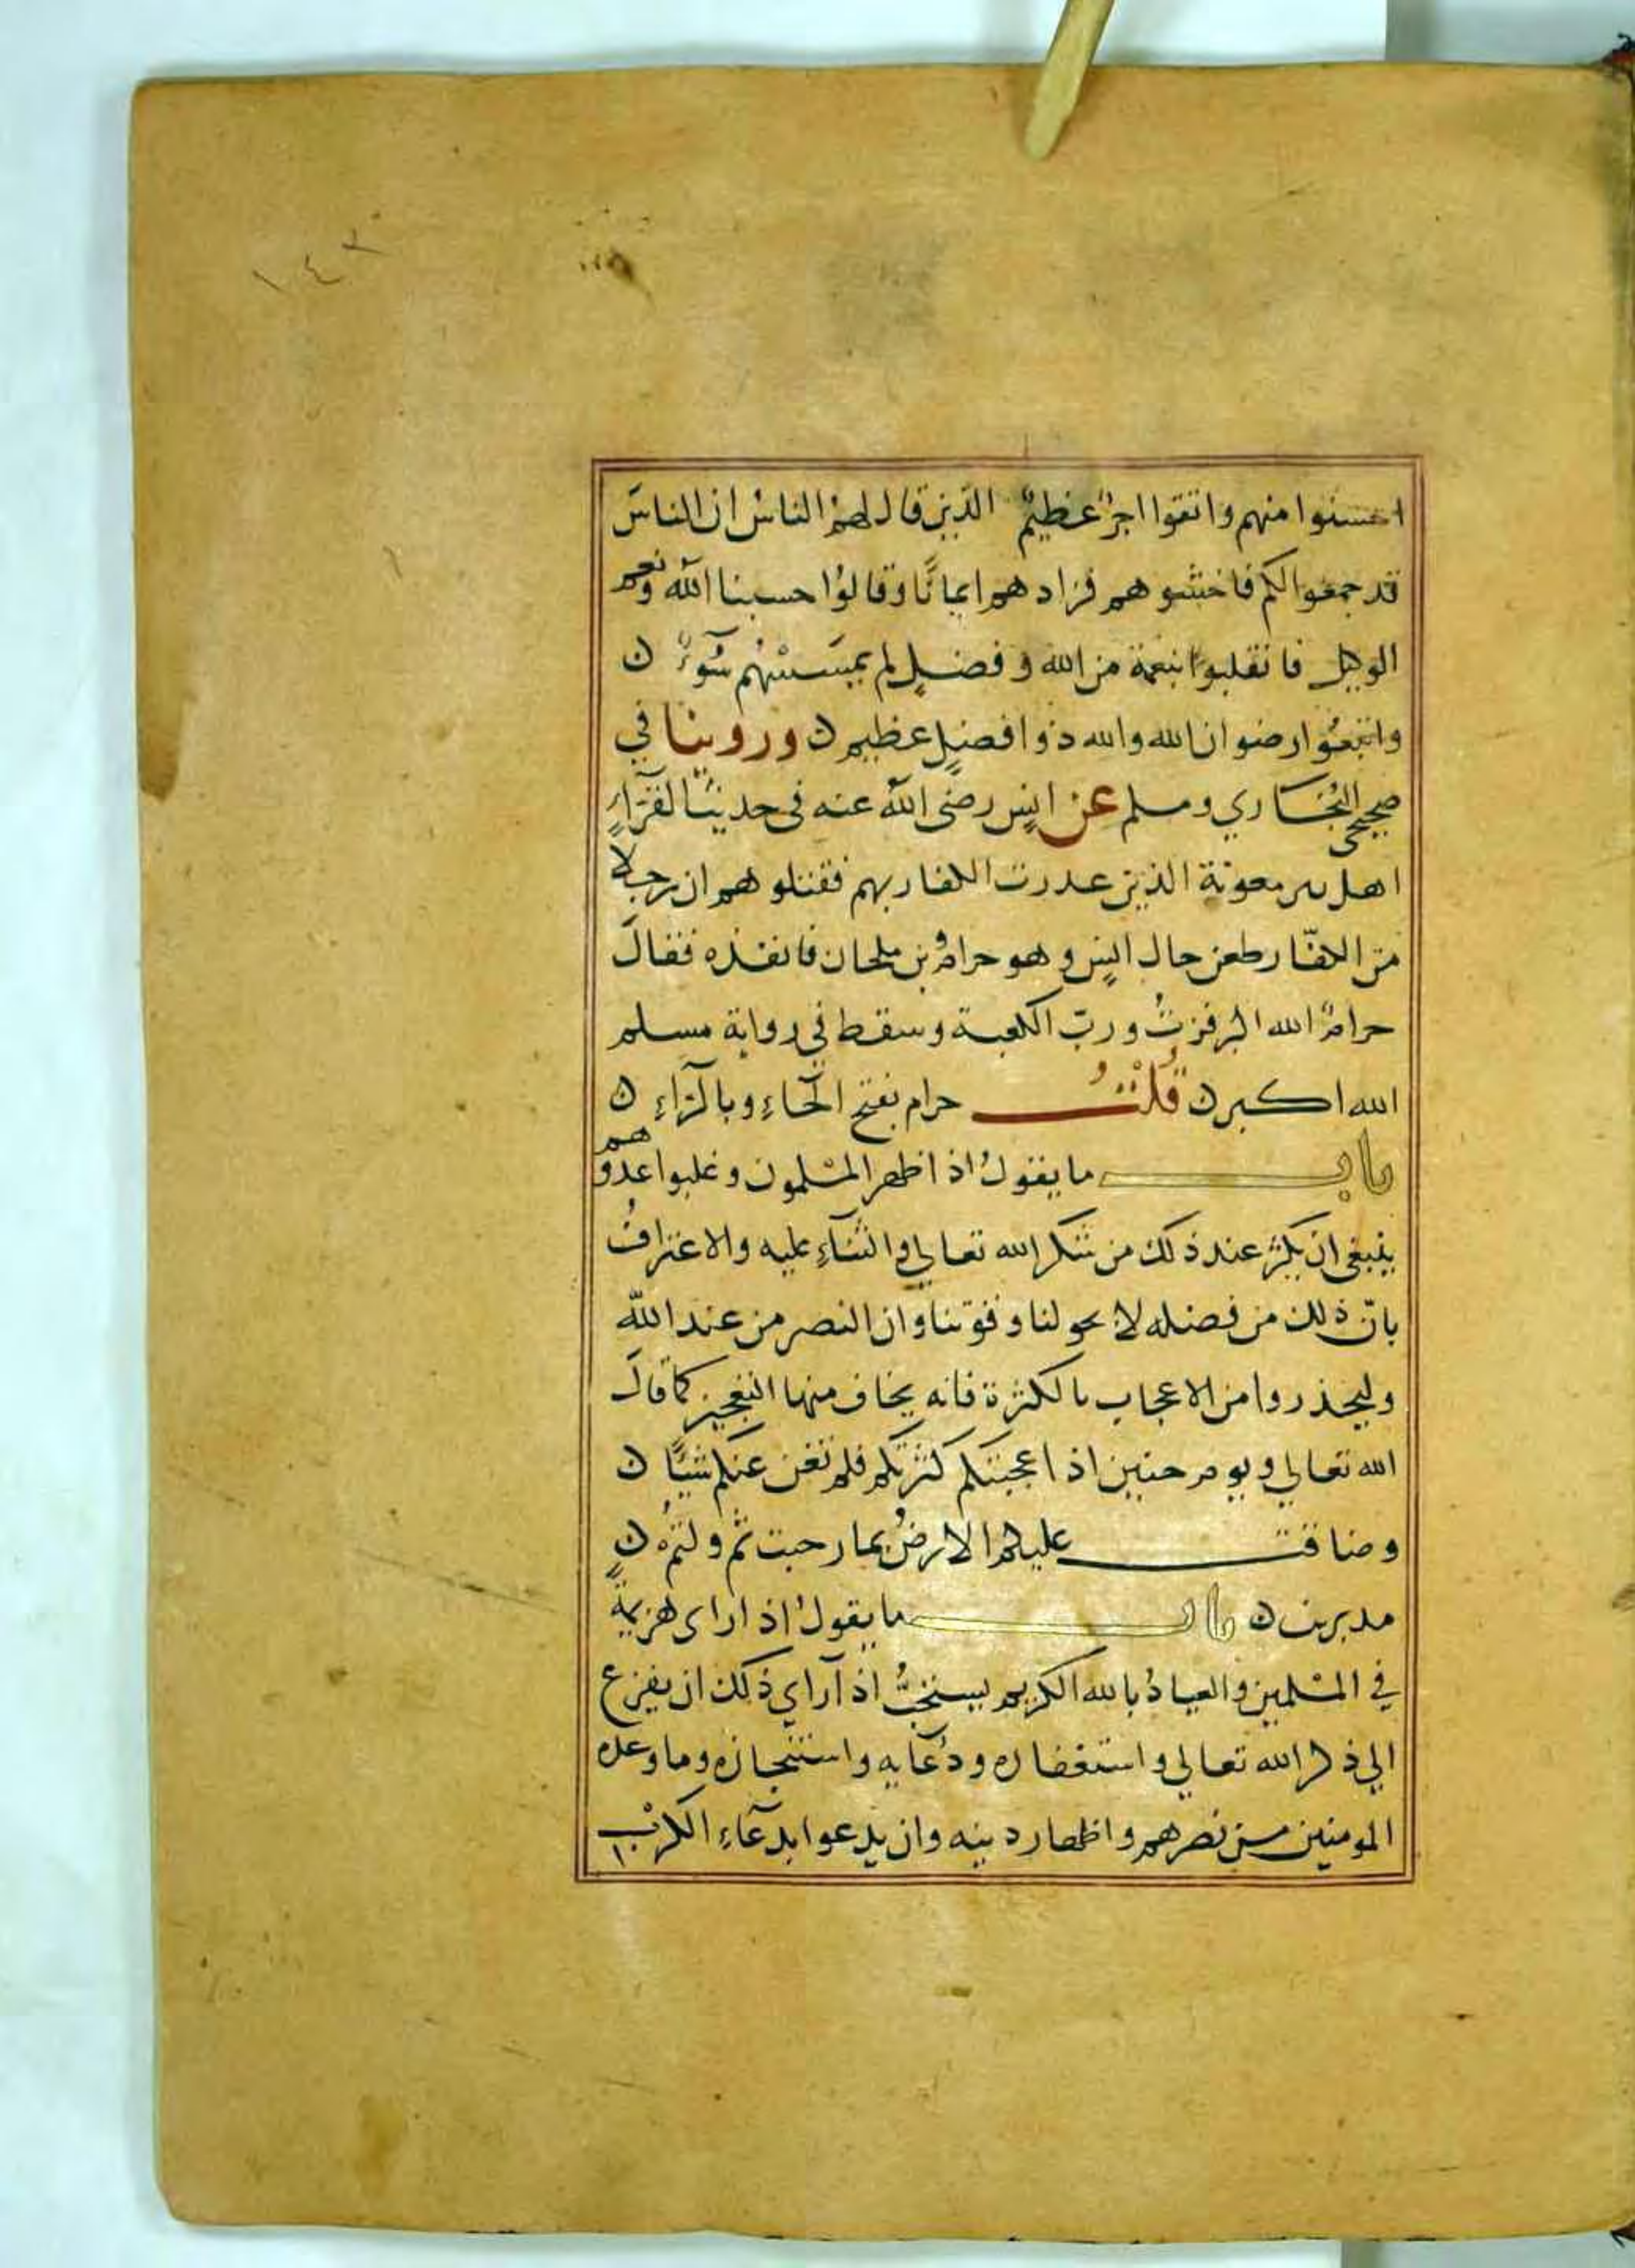 ١٤٣
احسنوا منهم واتقوا اجرٌ عظيمٌ الذين قال لهم الناسُ ان الناسَ
قد جمعوا لكم فاخشوهم فزادهم ايمانًا وقالوُا حسبنا الله ونعم
الوكيل فانقلبوا بنعمة من الله وفضلٍ لم يمسَسْهُم سُوءٌ ن
واتبعُوا رضوان الله والله ذوا فضلٍ عظيم ن وروينا في
صحيحي البُخاري ومسلم عن انسٍ رضى الله عنه فى حديث القرّاءِ
اهل بير معونة الذين غدرت الكفار بهم فقتلوهم ان رجلا
من الكفّار طعن خال انسٍ وهو حرام بن ملحان فانفذه فقالَ
حرامٌ الله اكبر فزتُ وربّ الكعبة وسقط في رواية مسلم
الله اكبر ن قُلْتُ حرام بفتح الحاءِ وبالرّاءِ ن
باب ما يقولُ اذا ظهر المسْلمون وغلبوا عدوهم
ينبغى ان يكثر عند ذلك من شكر الله تعالى والثناءِ عليه والاعترافُ
بانّ ذلك من فضله لا بحولنا وقوتنا وان النصر من عند الله
وليحذروا من الاعجاب بالكثرة فانه يخاف منها التعجيز كما قالَ
الله تعالى ويوم حنين اذ اعجبتكم كثرتكم فلم تغن عنكم شيئًا ن
وضاقت عليكم الارضُ بما رحبت ثم ولتمُ ن
مدبرين ن باب ما يقولُ اذا راى هزيمةً
في المسْلمين والعياذُ بالله الكريم يستحبُّ اذا راي ذلك ان يفزع
الي ذكر الله تعالي واستغفاره ودُعايه واستنجازه وما وعده
المومنين من نصرهم واظهار دينه وان يدعوا بدعاءِ الكرْب